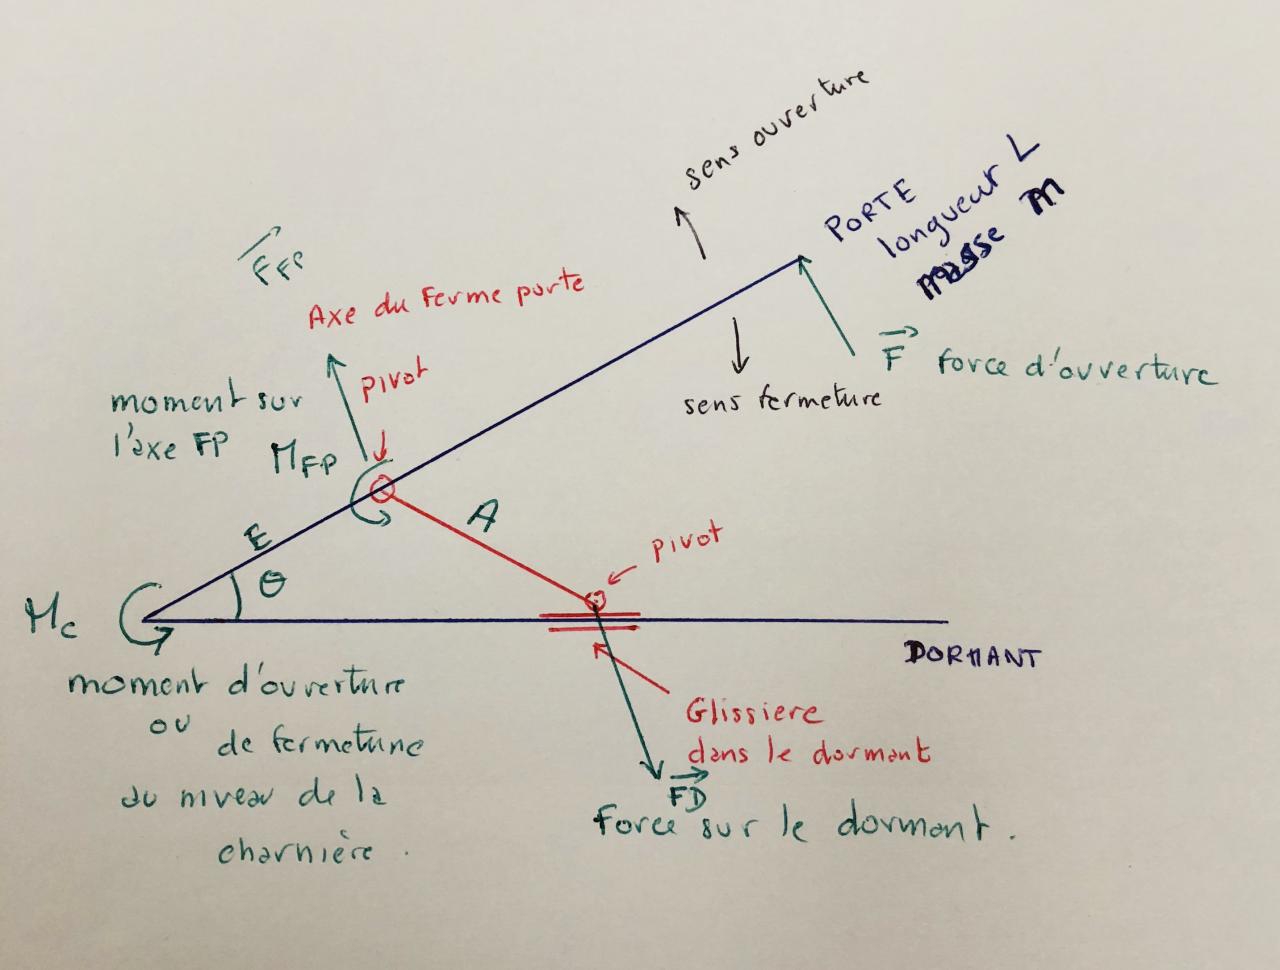 sens ouverture
PORTE
longueur L
masse m
F FP
Axe du Ferme porte
pivot
F force d'ouverture
sens fermeture
moment sur
l'axe FP M FP
E
A
θ
pivot
Mc
DORMANT
moment d'ouverture
ou
de fermeture
au niveau de la
charnière.
Glissiere
dans le dormant
FD
Force sur le dormant.